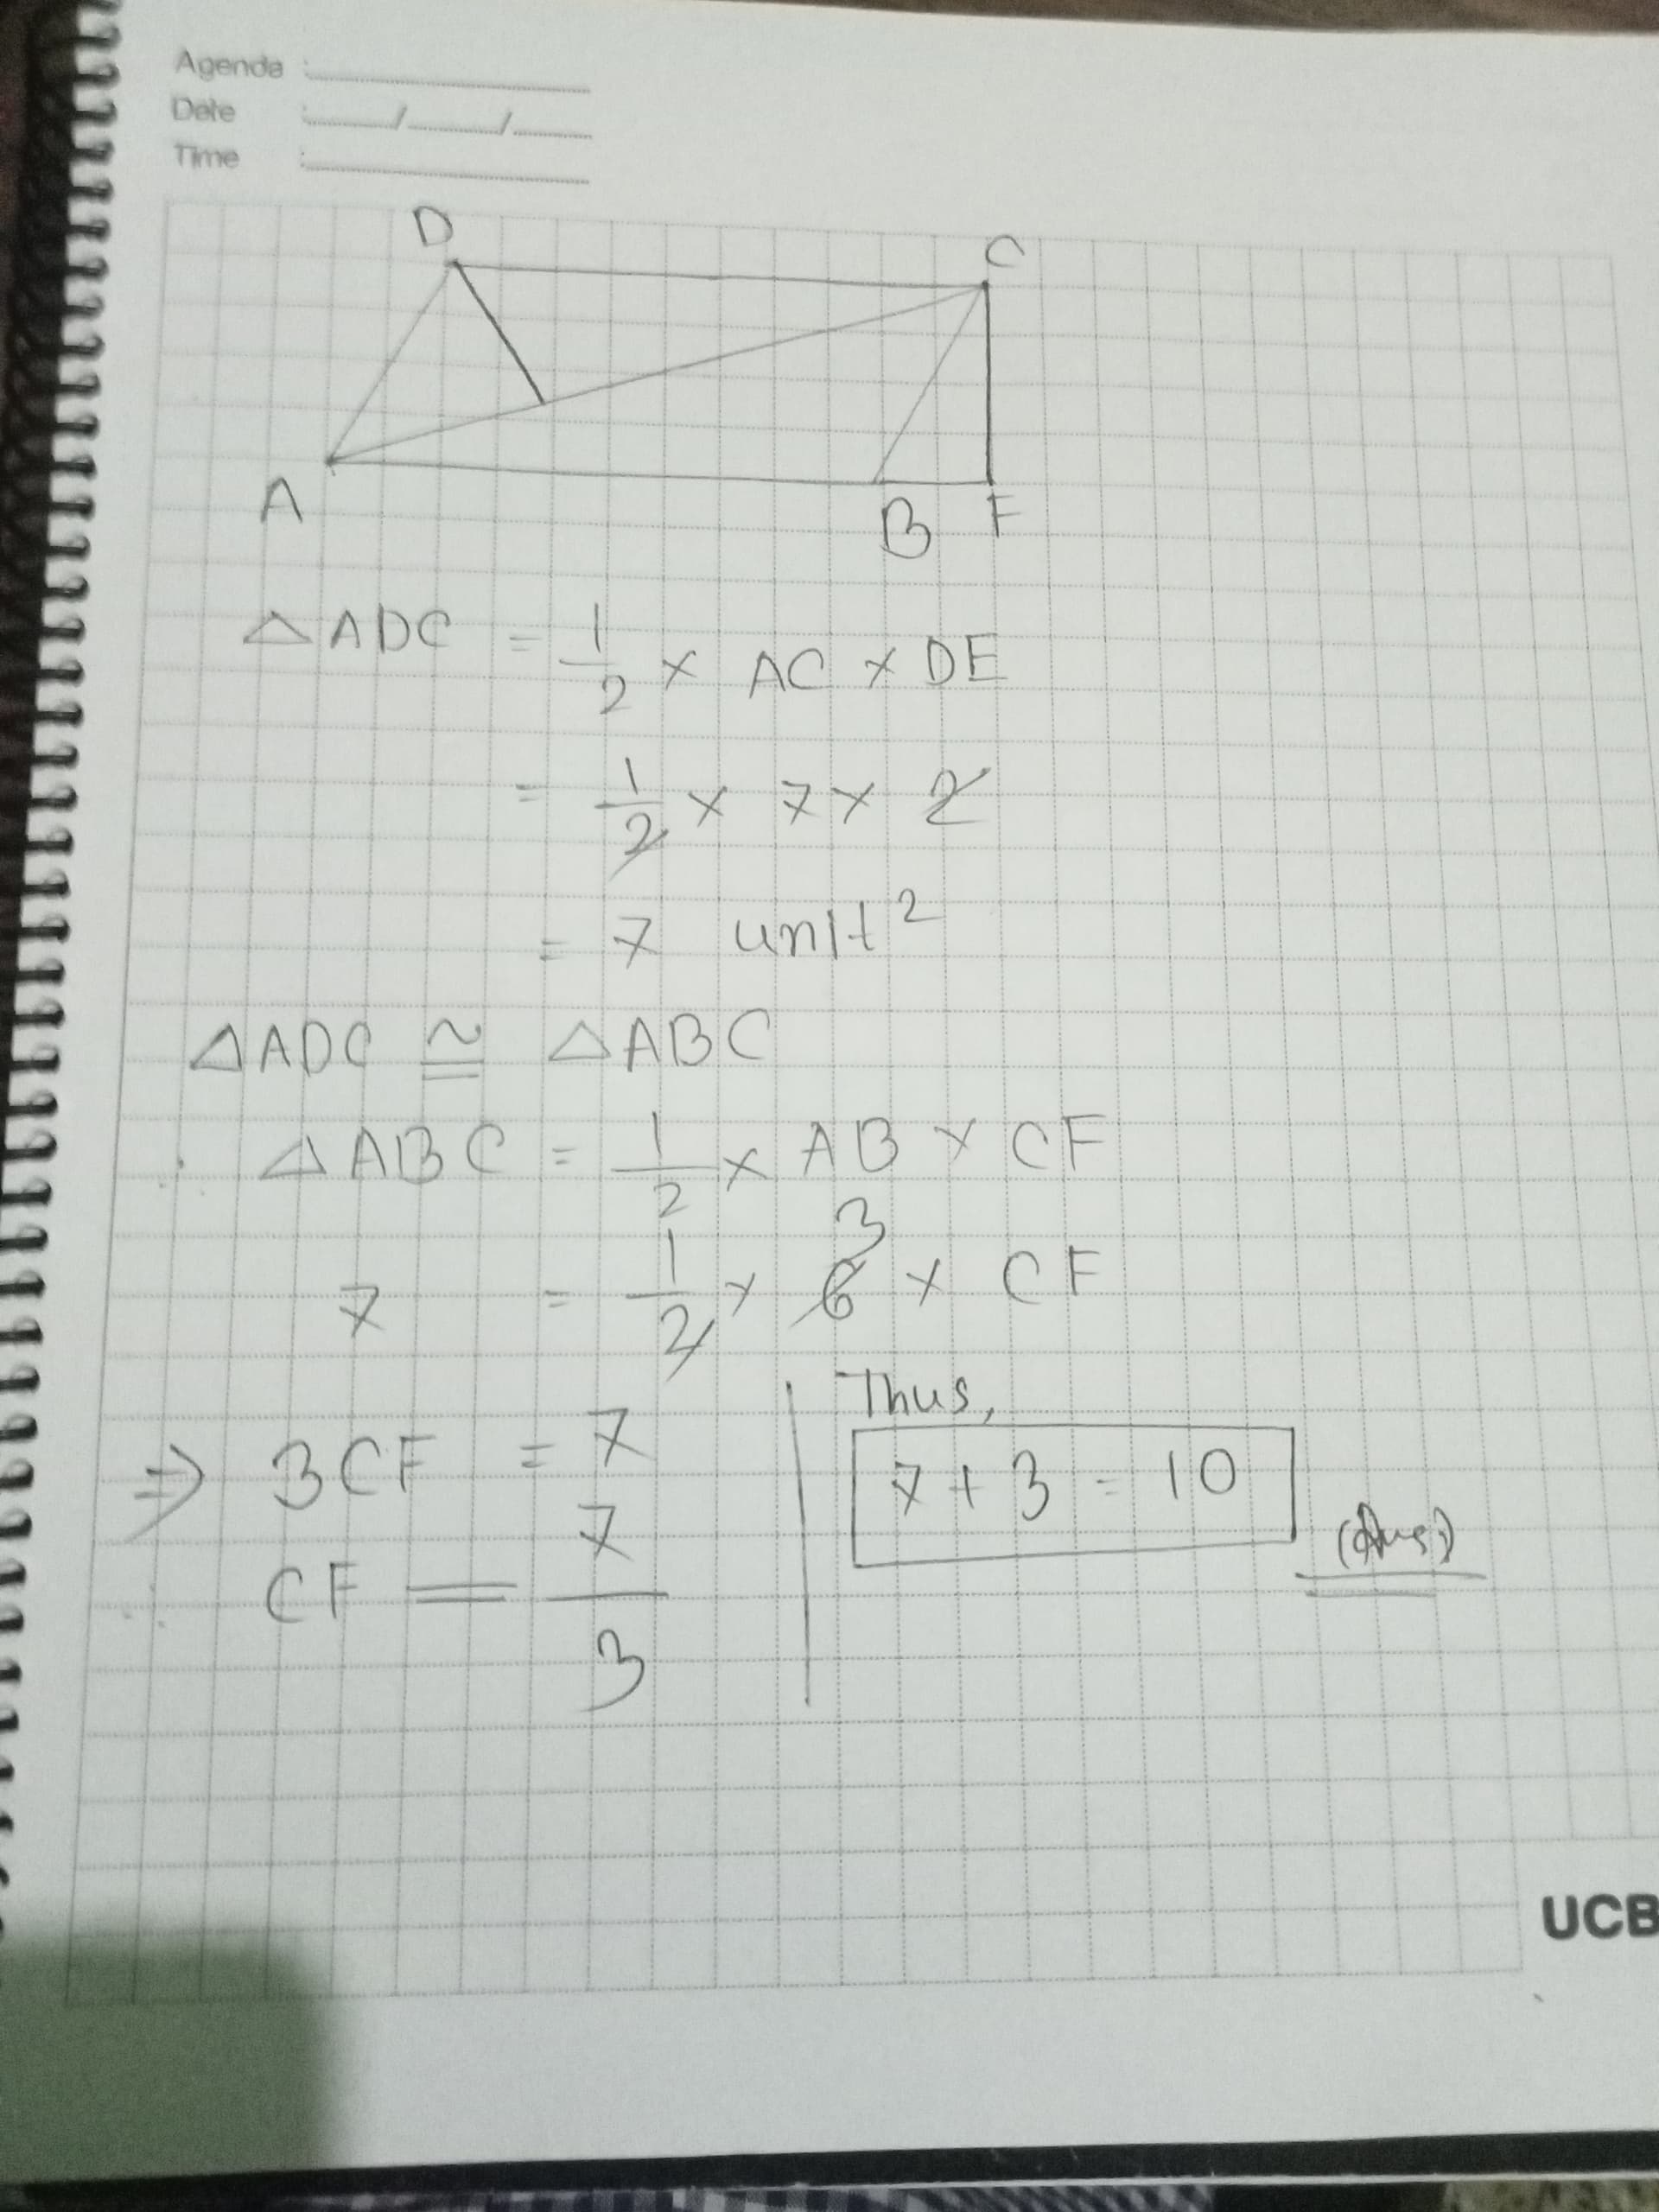 Agenda :
Date : / /
Time :
D
C
A
B F
△ADC = 1/2 × AC × DE
= 1/2 × 7 × 2
= 7 unit²
△ADC ≅ △ABC
∴ △ABC = 1/2 × AB × CF
3
7 = 1/2 × 6 × CF
⇒ 3CF = 7
∴ CF = 7/3
Thus,
7 + 3 = 10
(Ans)
UCB